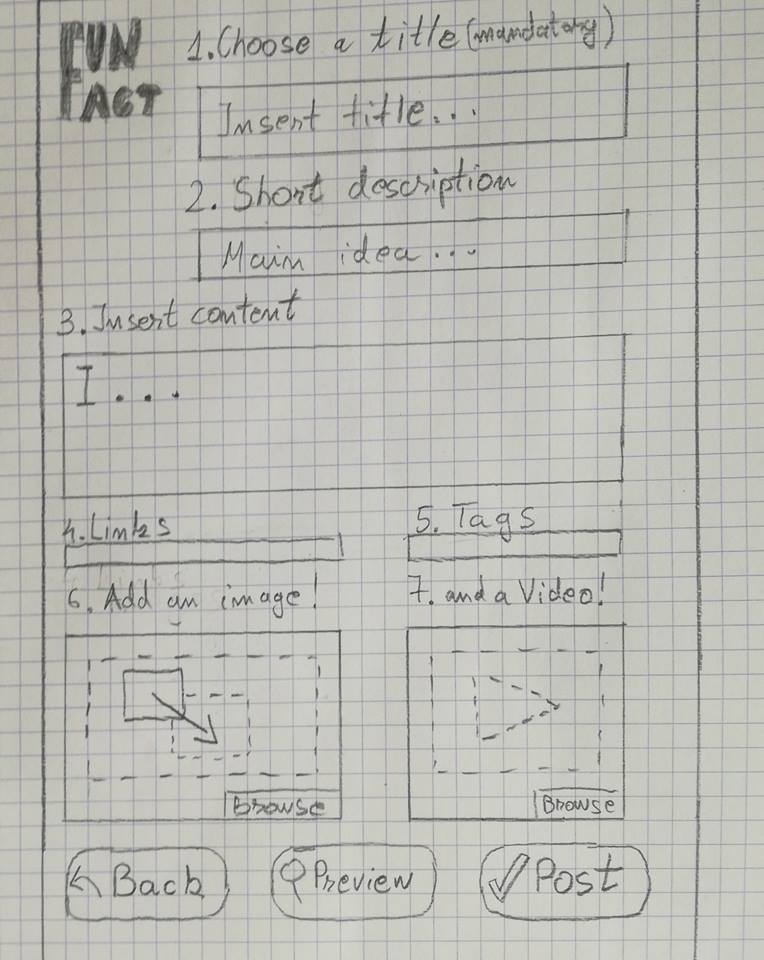 FUN
FACT
1. Choose a title (mandatory)
Insert title...
2. Short description
Main idea...
3. Insert content
I...
4. Links
5. Tags
6. Add an image!
7. and a Video!
Browse
Browse
Back
Preview
Post